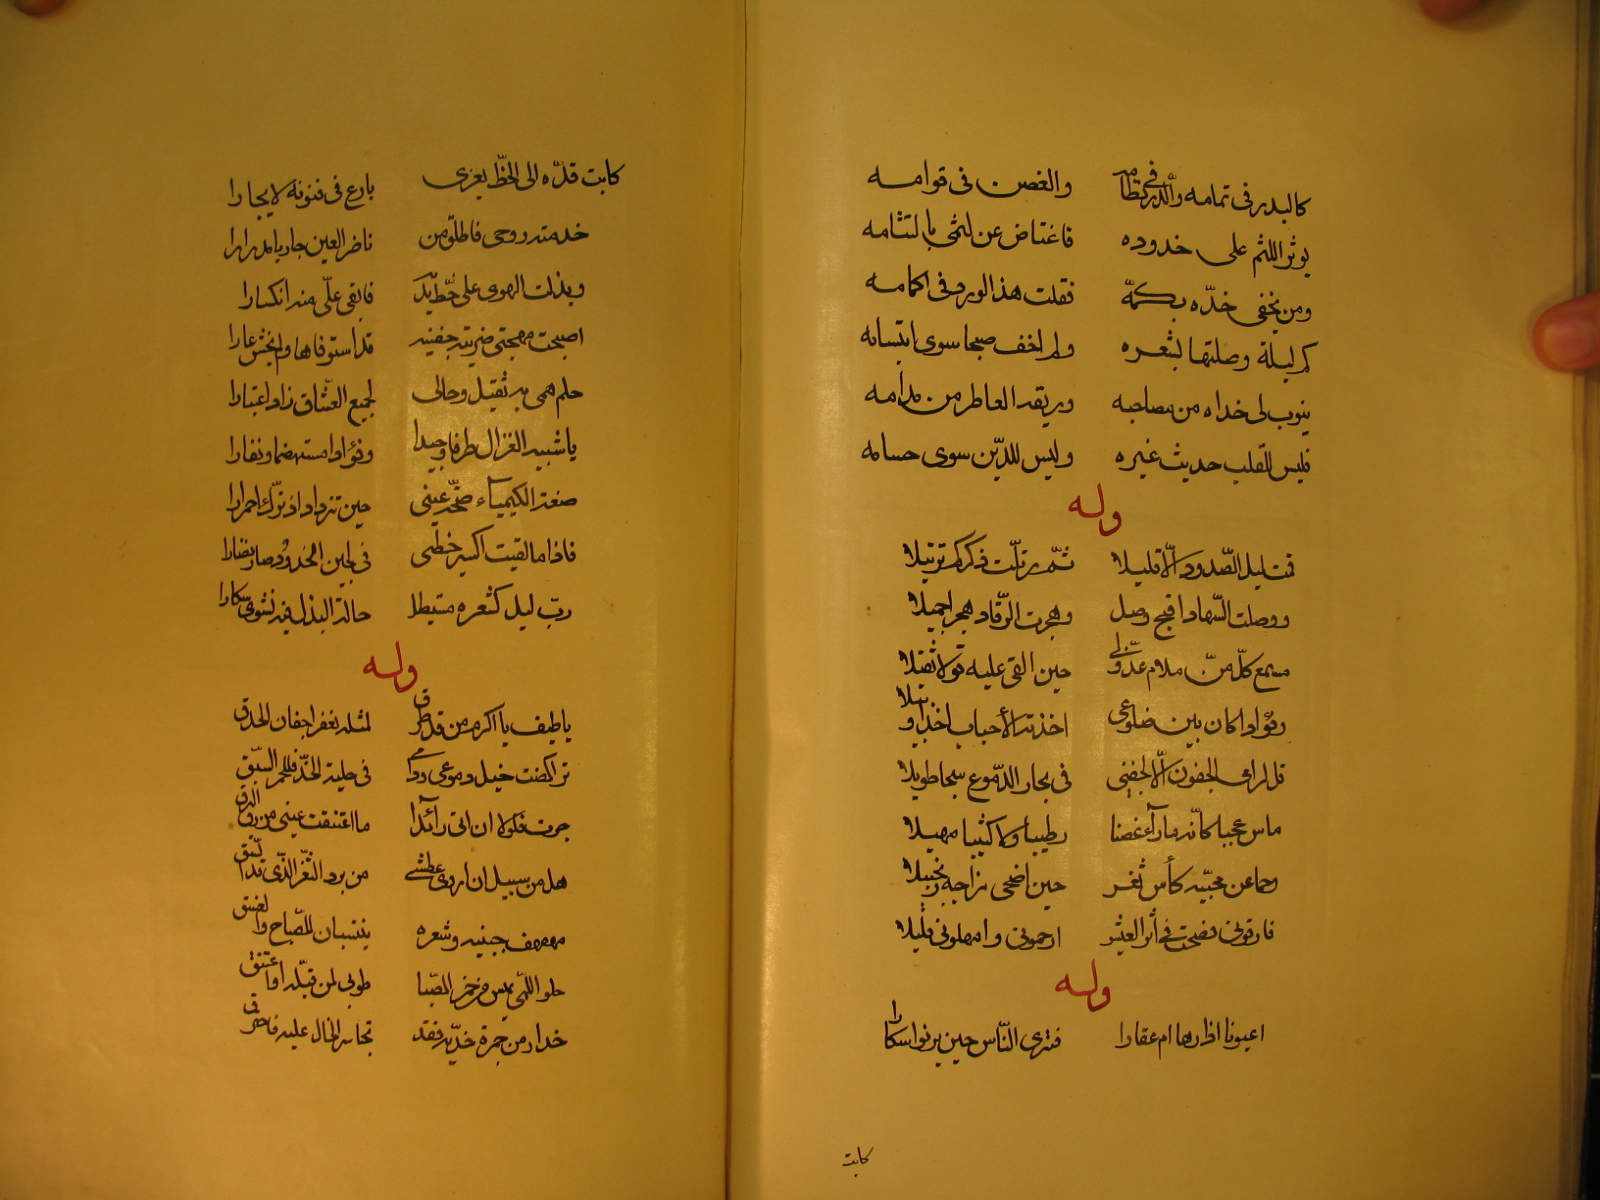 كالبدر فى تمامه والدّر فى نظامه والغصن فى قوامه
يوثر اللثم على خدوده فاعتاض عن لثمى بالتثامه
ومن يخفى خدّه بكمّه فقلت هذا الورد فى اكمامه
كم ليلة وصلتها بشعره ولم اخف صبحا سوى ابتسامه
ينوب لى خداه من مصاحبه وريقه العاطر من مدامه
فليس للقلب حديث غيره وليس للدّين سوى حسامه
وله
قمت ليل الصّدود الّا قليلا ثمّ رتلّت ذكركم ترتيلا
ووصلت السّهاد اقبح وصل وهجرت الرّقاد هجرا جميلا
مسمع كلّ منّ ملام عذولى حين القى عليه قولا ثقيلا
وفؤاد اكان بين ضلوعى اخذته الأحباب اخذا وبيلا
قل لراقى الجفون الّا لجفنى فى بحار الدّموع سبحا طويلا
ماس عجبا كأنّه ما رآء غصنا رطيبا ولا كثيبا مهيلا
وحما عن محبّيه كأس ثغر حين اضحى مزاجه زنجبيلا
فارقونى فصحت فى أثر العيش ارحمونى وامهلونى قليلا
وله
اعيونا اذا رها ام عقارا فترى النّاس حين يرنوا سكارا
كابت
كابت قدّه الى الخطّ يعزى بارع فى فنونه لا يجارا
خدمته روحى فاطلق من ناظر العين جاريا مدرارا
وبذلت الهوى على خطّ يد فابقى علّى منه انكسارا
اصبحت مهجتى ضريبة جفنيه قد استوفاها ولم يخش عارا
حلم همى به ثقيل وحالى لجميع العشّاق زاد اعتبارا
يا شبيه الغزال طرفا وجيدا وفؤادا مستهضما ونفارا
صنعة الكيمياء صحّت عينى حين تزداد اذ ترك احمرارا
فاذا ما القيت اكسير خطى فى لجين الخدود صار نضارا
ربّ ليل كشعره مستيطل حالة البذل فيه نشوى سكارا
وله
يا طيف يا اكرم من قد طرق لمثله يغفر اجفان الحدق
تراكضت خيل دموعى دما فى حلبة الخدّ فللحمر السّبق
جرت فلولا ان اتى رآئدا ما اعتنقت عينى من الارق
هل من سبيل ان اروى عطشى من برد الثغر الذّى
مهفهف جبينه وشعره ينتسبان للصّباح والغسق
حلو اللّمى يميس من خمر الصّبا طوبى لمن قبّله او اعتنق
حذار من جمرة خدّيه فقد تجاسر الخال عليه فاحترق